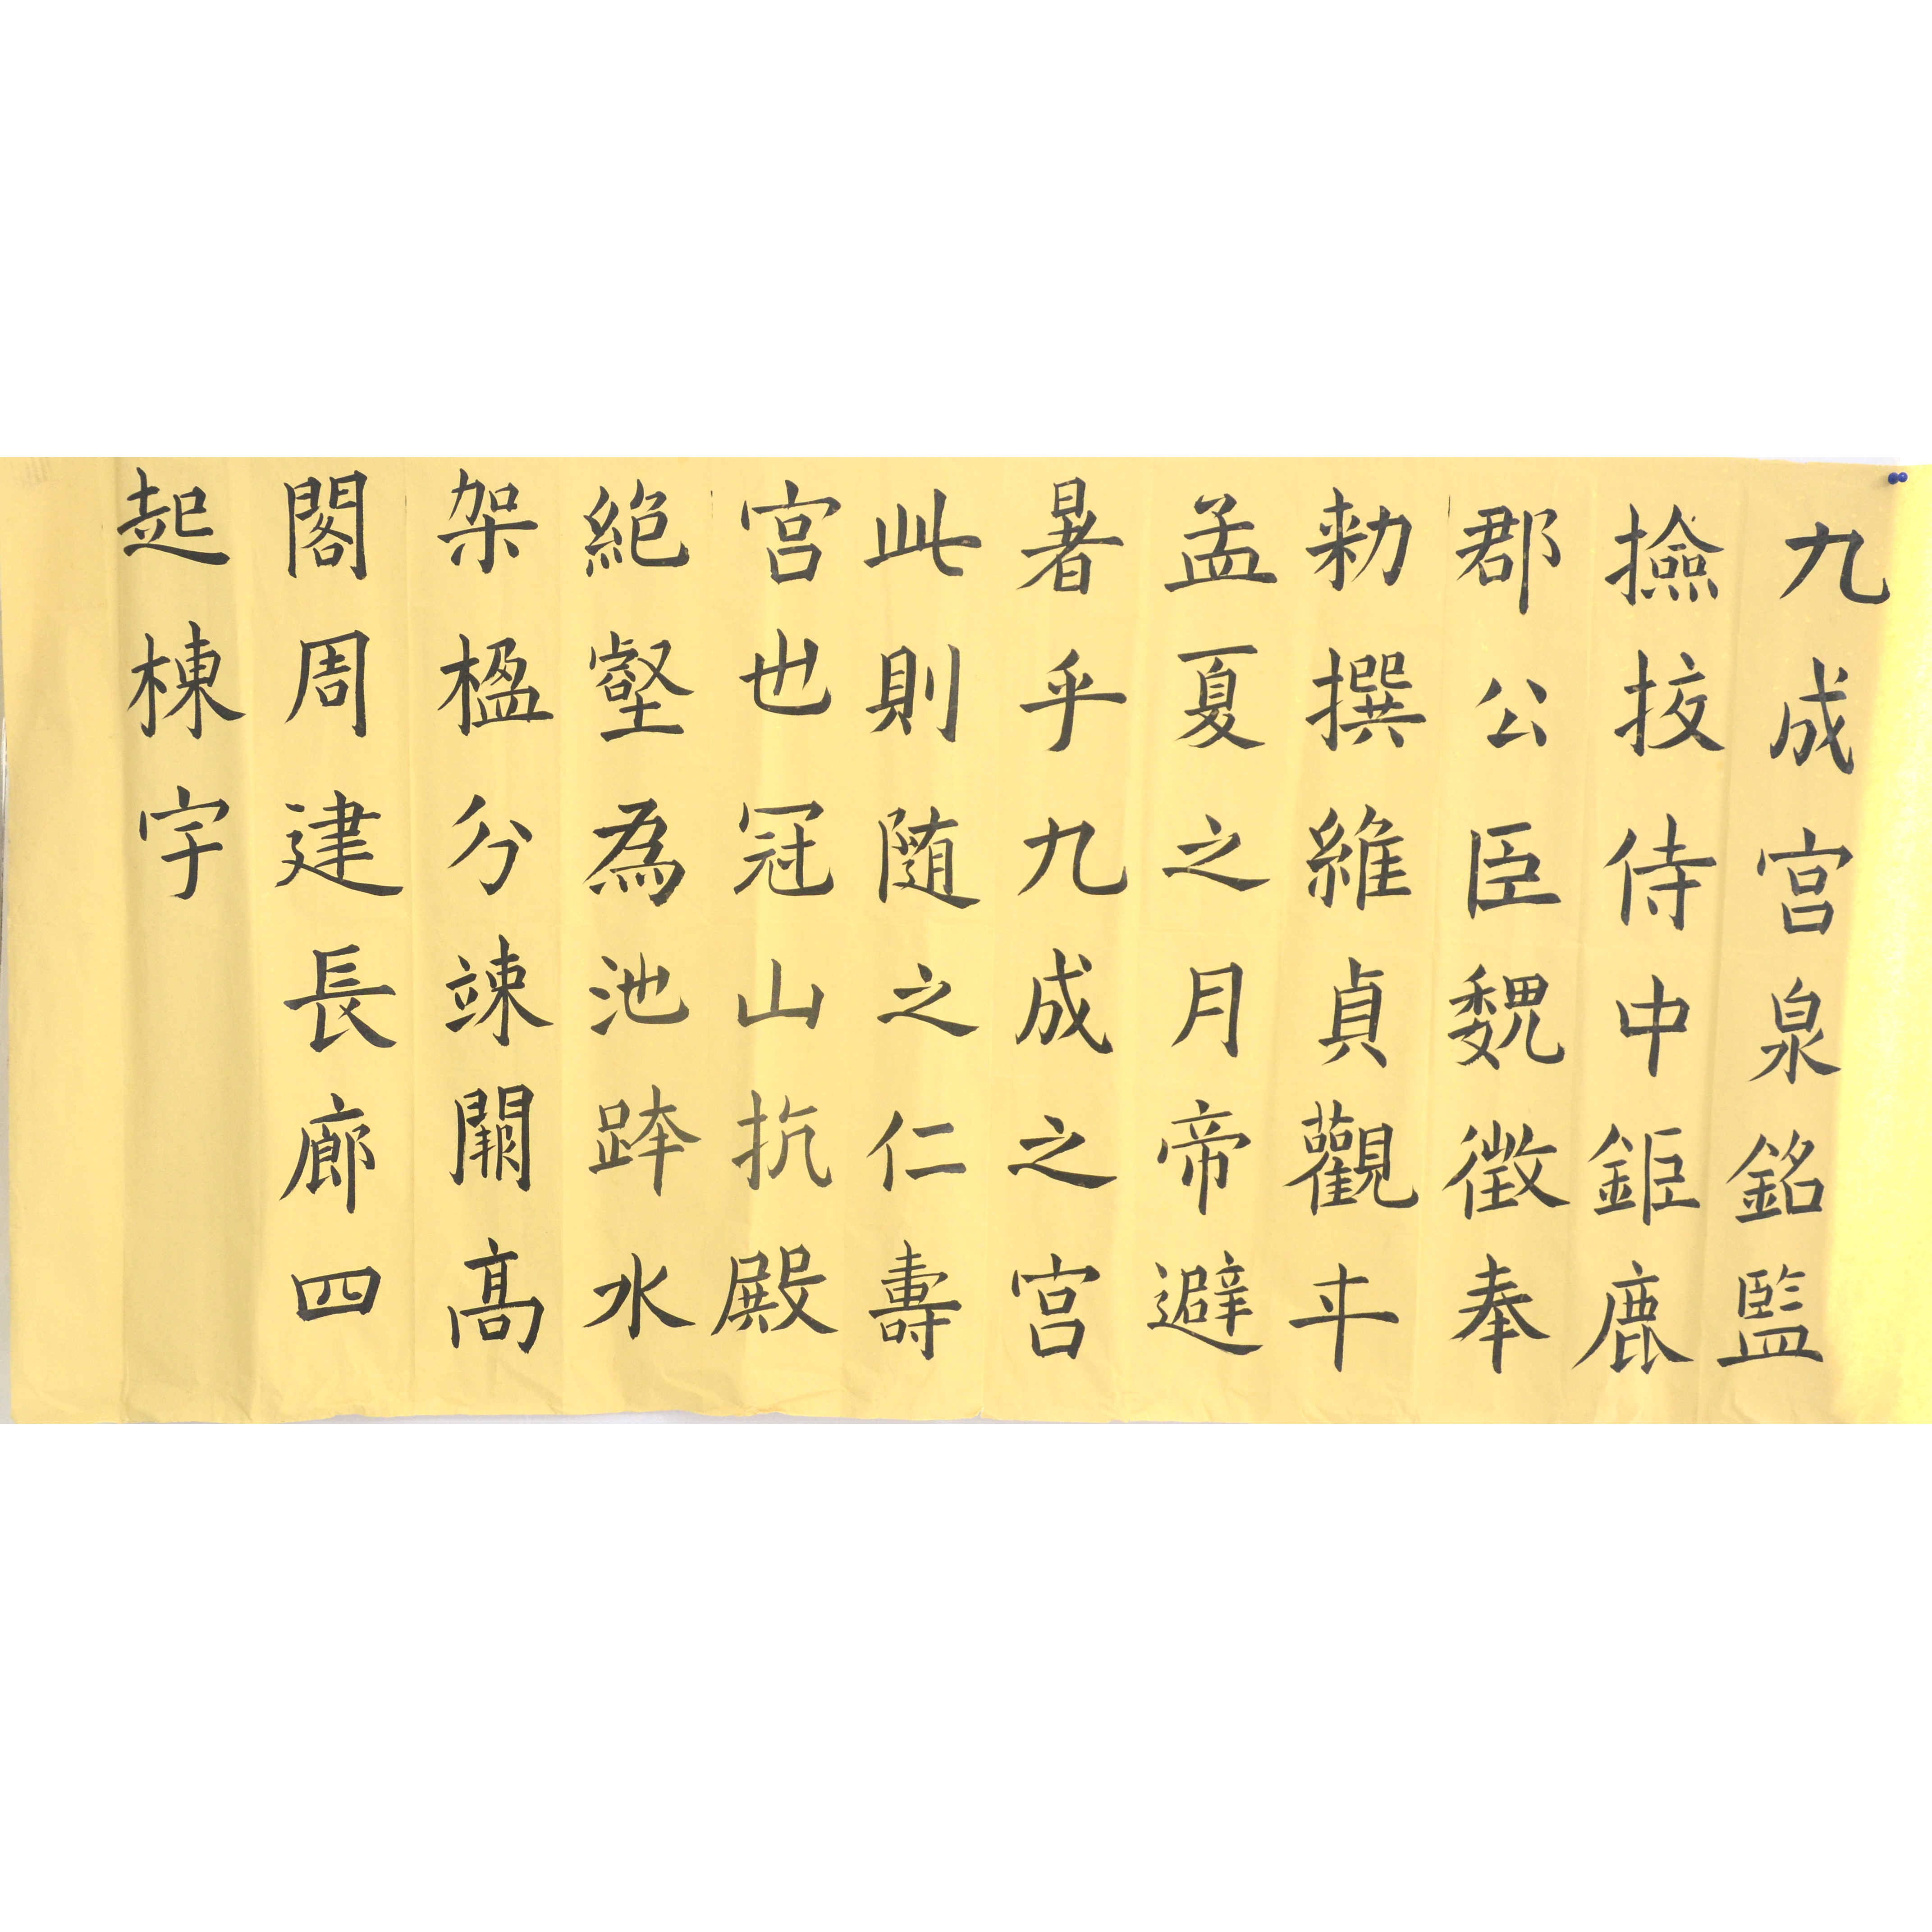 九成宫泉銘監
撿挍侍中鉅鹿
郡公臣魏徵奉
勑撰維貞觀斗
孟夏之月帝避
暑乎九成之宫
此則随之仁壽
宫也冠山抗殿
絶壑為池跨水
架楹分竦闕高
閣周建長廊四
起棟宇